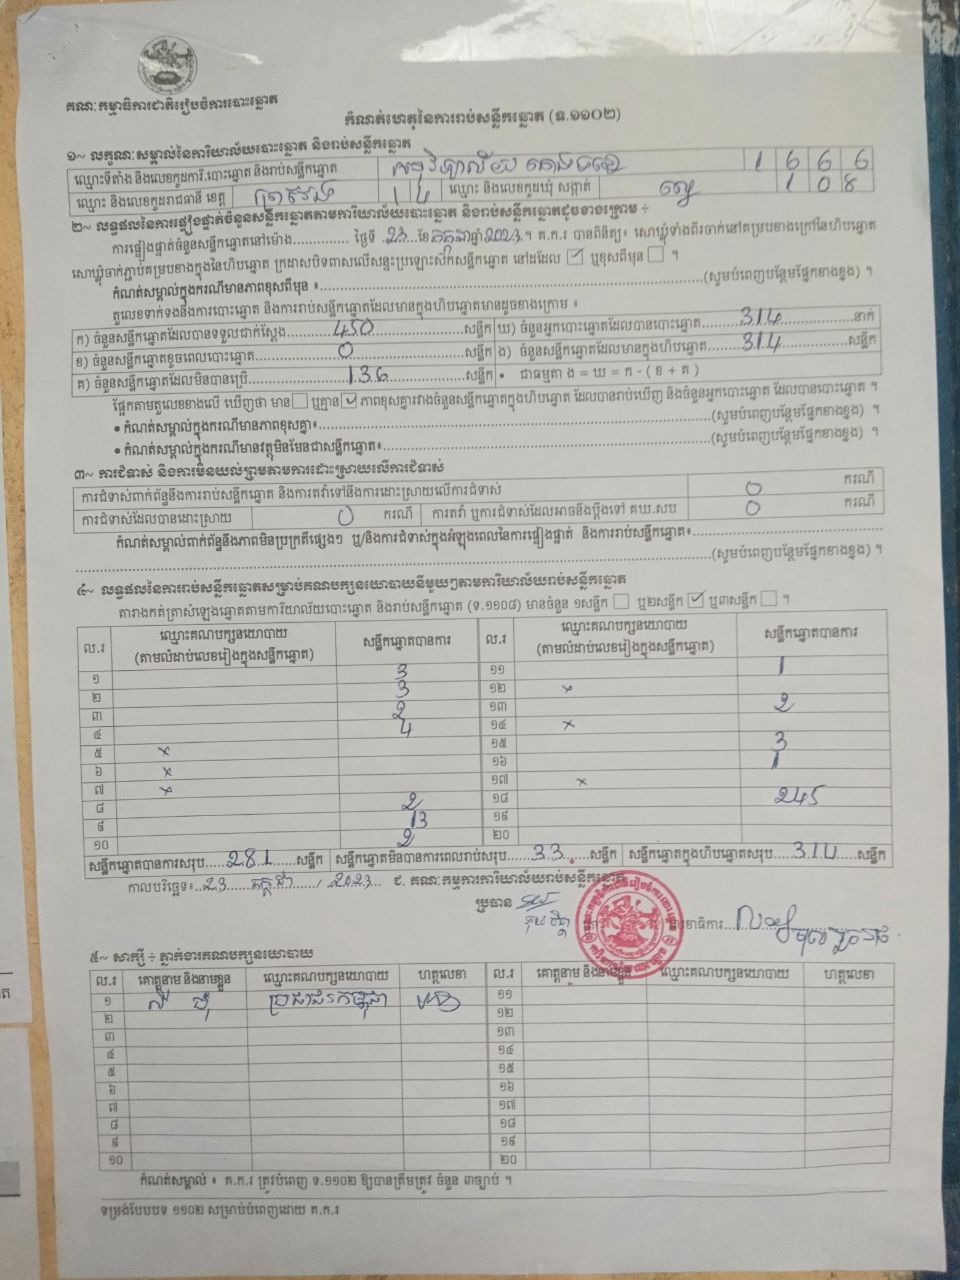 គណៈកម្មាធិការជាតិរៀបចំការបោះឆ្នោត
កំណត់ហេតុនៃការរាប់សន្លឹកឆ្នោត (ទ.១១០២)
១~ លក្ខណៈសម្គាល់នៃការិយាល័យបោះឆ្នោត និងរាប់សន្លឹកឆ្នោត
ឈ្មោះទីតាំង និងលេខកូដការិ.បោះឆ្នោត និងរាប់សន្លឹកឆ្នោត 1 6 6 6
ឈ្មោះ និងលេខកូដរាជធានី ខេត្ត ព្រៃវែង 14 ឈ្មោះ និងលេខកូដឃុំ សង្កាត់ 1 0 8
២~ លទ្ធផលនៃការផ្ទៀងផ្ទាត់ចំនួនសន្លឹកឆ្នោតតាមការិយាល័យបោះឆ្នោត និងរាប់សន្លឹកឆ្នោតដូចខាងក្រោម ÷
ការផ្ទៀងផ្ទាត់ចំនួនសន្លឹកឆ្នោតនៅម៉ោង............. ថ្ងៃទី .23...ខែកក្កដាឆ្នាំ2023.។ គ.ក.រ បានពិនិត្យ៖ សោឃ្លុំទាំងពីរចាក់នៅគម្របខាងក្រៅនៃហិបឆ្នោត
សោឃ្លុំចាក់ភ្ជាប់គម្របខាងក្នុងនៃហិបឆ្នោត ក្រដាសបិទពាសលើសន្ទះប្រឡោះស៊កសន្លឹកឆ្នោត នៅដដែល ☑ ឬខុសពីមុន ☐ ។
កំណត់សម្គាល់ក្នុងករណីមានភាពខុសពីមុន ៖..........(សូមបំពេញបន្ថែមផ្នែកខាងខ្នង) ។
តួលេខទាក់ទងនឹងការបោះឆ្នោត និងការរាប់សន្លឹកឆ្នោតដែលមានក្នុងហិបឆ្នោតមានដូចខាងក្រោម ៖
ក) ចំនួនសន្លឹកឆ្នោតដែលបានទទួលជាក់ស្តែង..........450..........សន្លឹក ឃ) ចំនួនអ្នកបោះឆ្នោតដែលបានបោះឆ្នោត..........314..........នាក់
ខ) ចំនួនសន្លឹកឆ្នោតខូចពេលបោះឆ្នោត..........0..........សន្លឹក ង) ចំនួនសន្លឹកឆ្នោតដែលមានក្នុងហិបឆ្នោត..........314..........សន្លឹក
គ) ចំនួនសន្លឹកឆ្នោតដែលមិនបានប្រើ..........136..........សន្លឹក • ជាធម្មតា ង = ឃ = ក - ( ខ + គ )
ផ្អែកតាមតួលេខខាងលើ ឃើញថា មាន☐ ឬគ្មាន☑ ភាពខុសគ្នារវាងចំនួនសន្លឹកឆ្នោតក្នុងហិបឆ្នោត ដែលបានរាប់ឃើញ និងចំនួនអ្នកបោះឆ្នោត ដែលបានបោះឆ្នោត ។
• កំណត់សម្គាល់ក្នុងករណីមានភាពខុសគ្នា៖..........(សូមបំពេញបន្ថែមផ្នែកខាងខ្នង) ។
• កំណត់សម្គាល់ក្នុងករណីមានវត្ថុមិនមែនជាសន្លឹកឆ្នោត៖..........(សូមបំពេញបន្ថែមផ្នែកខាងខ្នង) ។
៣~ ការជំទាស់ និងការមិនយល់ព្រមតាមការដោះស្រាយលើការជំទាស់
ការជំទាស់ពាក់ព័ន្ធនឹងការរាប់សន្លឹកឆ្នោត និងការតវ៉ាទៅនឹងការដោះស្រាយលើការជំទាស់ 0 ករណី
ការជំទាស់ដែលបានដោះស្រាយ 0 ករណី ការតវ៉ា ឬការជំទាស់ដែលអាចនឹងប្តឹងទៅ គឃ.សប 0 ករណី
កំណត់សម្គាល់ពាក់ព័ន្ធនឹងភាពមិនប្រក្រតីផ្សេងៗ ឬ/និងការជំទាស់ក្នុងអំឡុងពេលនៃការផ្ទៀងផ្ទាត់ និងការរាប់សន្លឹកឆ្នោត៖..........
..........(សូមបំពេញបន្ថែមផ្នែកខាងខ្នង) ។
៤~ លទ្ធផលនៃការរាប់សន្លឹកឆ្នោតសម្រាប់គណបក្សនយោបាយនីមួយៗតាមការិយាល័យរាប់សន្លឹកឆ្នោត
តារាងកត់ត្រាសំឡេងឆ្នោតតាមការិយាល័យបោះឆ្នោត និងរាប់សន្លឹកឆ្នោត (ទ.១១០៨) មានចំនួន ១សន្លឹក ☐ ឬ២សន្លឹក ☑ ឬ៣សន្លឹក ☐ ។
ល.រ ឈ្មោះគណបក្សនយោបាយ (តាមលំដាប់លេខរៀងក្នុងសន្លឹកឆ្នោត) សន្លឹកឆ្នោតបានការ ល.រ ឈ្មោះគណបក្សនយោបាយ (តាមលំដាប់លេខរៀងក្នុងសន្លឹកឆ្នោត) សន្លឹកឆ្នោតបានការ
១ 3 ១១ 1
២ 3 ១២ x
៣ 2 ១៣ 2
៤ 4 ១៤ x
៥ x ១៥ 3
៦ x ១៦ 1
៧ x ១៧ x
៨ 2 ១៨ 245
៩ 13 ១៩
១០ 2 ២០
សន្លឹកឆ្នោតបានការសរុប.....281......សន្លឹក សន្លឹកឆ្នោតមិនបានការពេលរាប់សរុប......33......សន្លឹក សន្លឹកឆ្នោតក្នុងហិបឆ្នោតសរុប.....314.....សន្លឹក
កាលបរិច្ឆេទ៖..23....កក្កដា..../.2023... ជ. គណៈកម្មការការិយាល័យរាប់សន្លឹកឆ្នោត
ប្រធាន លេខាធិការ
៥~ សាក្សី ÷ ភ្នាក់ងារគណបក្សនយោបាយ
ល.រ គោត្តនាម និងនាមខ្លួន ឈ្មោះគណបក្សនយោបាយ ហត្ថលេខា ល.រ គោត្តនាម និងនាមខ្លួន ឈ្មោះគណបក្សនយោបាយ ហត្ថលេខា
១ ប្រជាជនកម្ពុជា ១១
២ ១២
៣ ១៣
៤ ១៤
៥ ១៥
៦ ១៦
៧ ១៧
៨ ១៨
៩ ១៩
១០ ២០
កំណត់សម្គាល់ ៖ គ.ក.រ ត្រូវបំពេញ ទ.១១០២ ឱ្យបានត្រឹមត្រូវ ចំនួន ៣ច្បាប់ ។
ទម្រង់បែបបទ ១១០២ សម្រាប់បំពេញដោយ គ.ក.រ